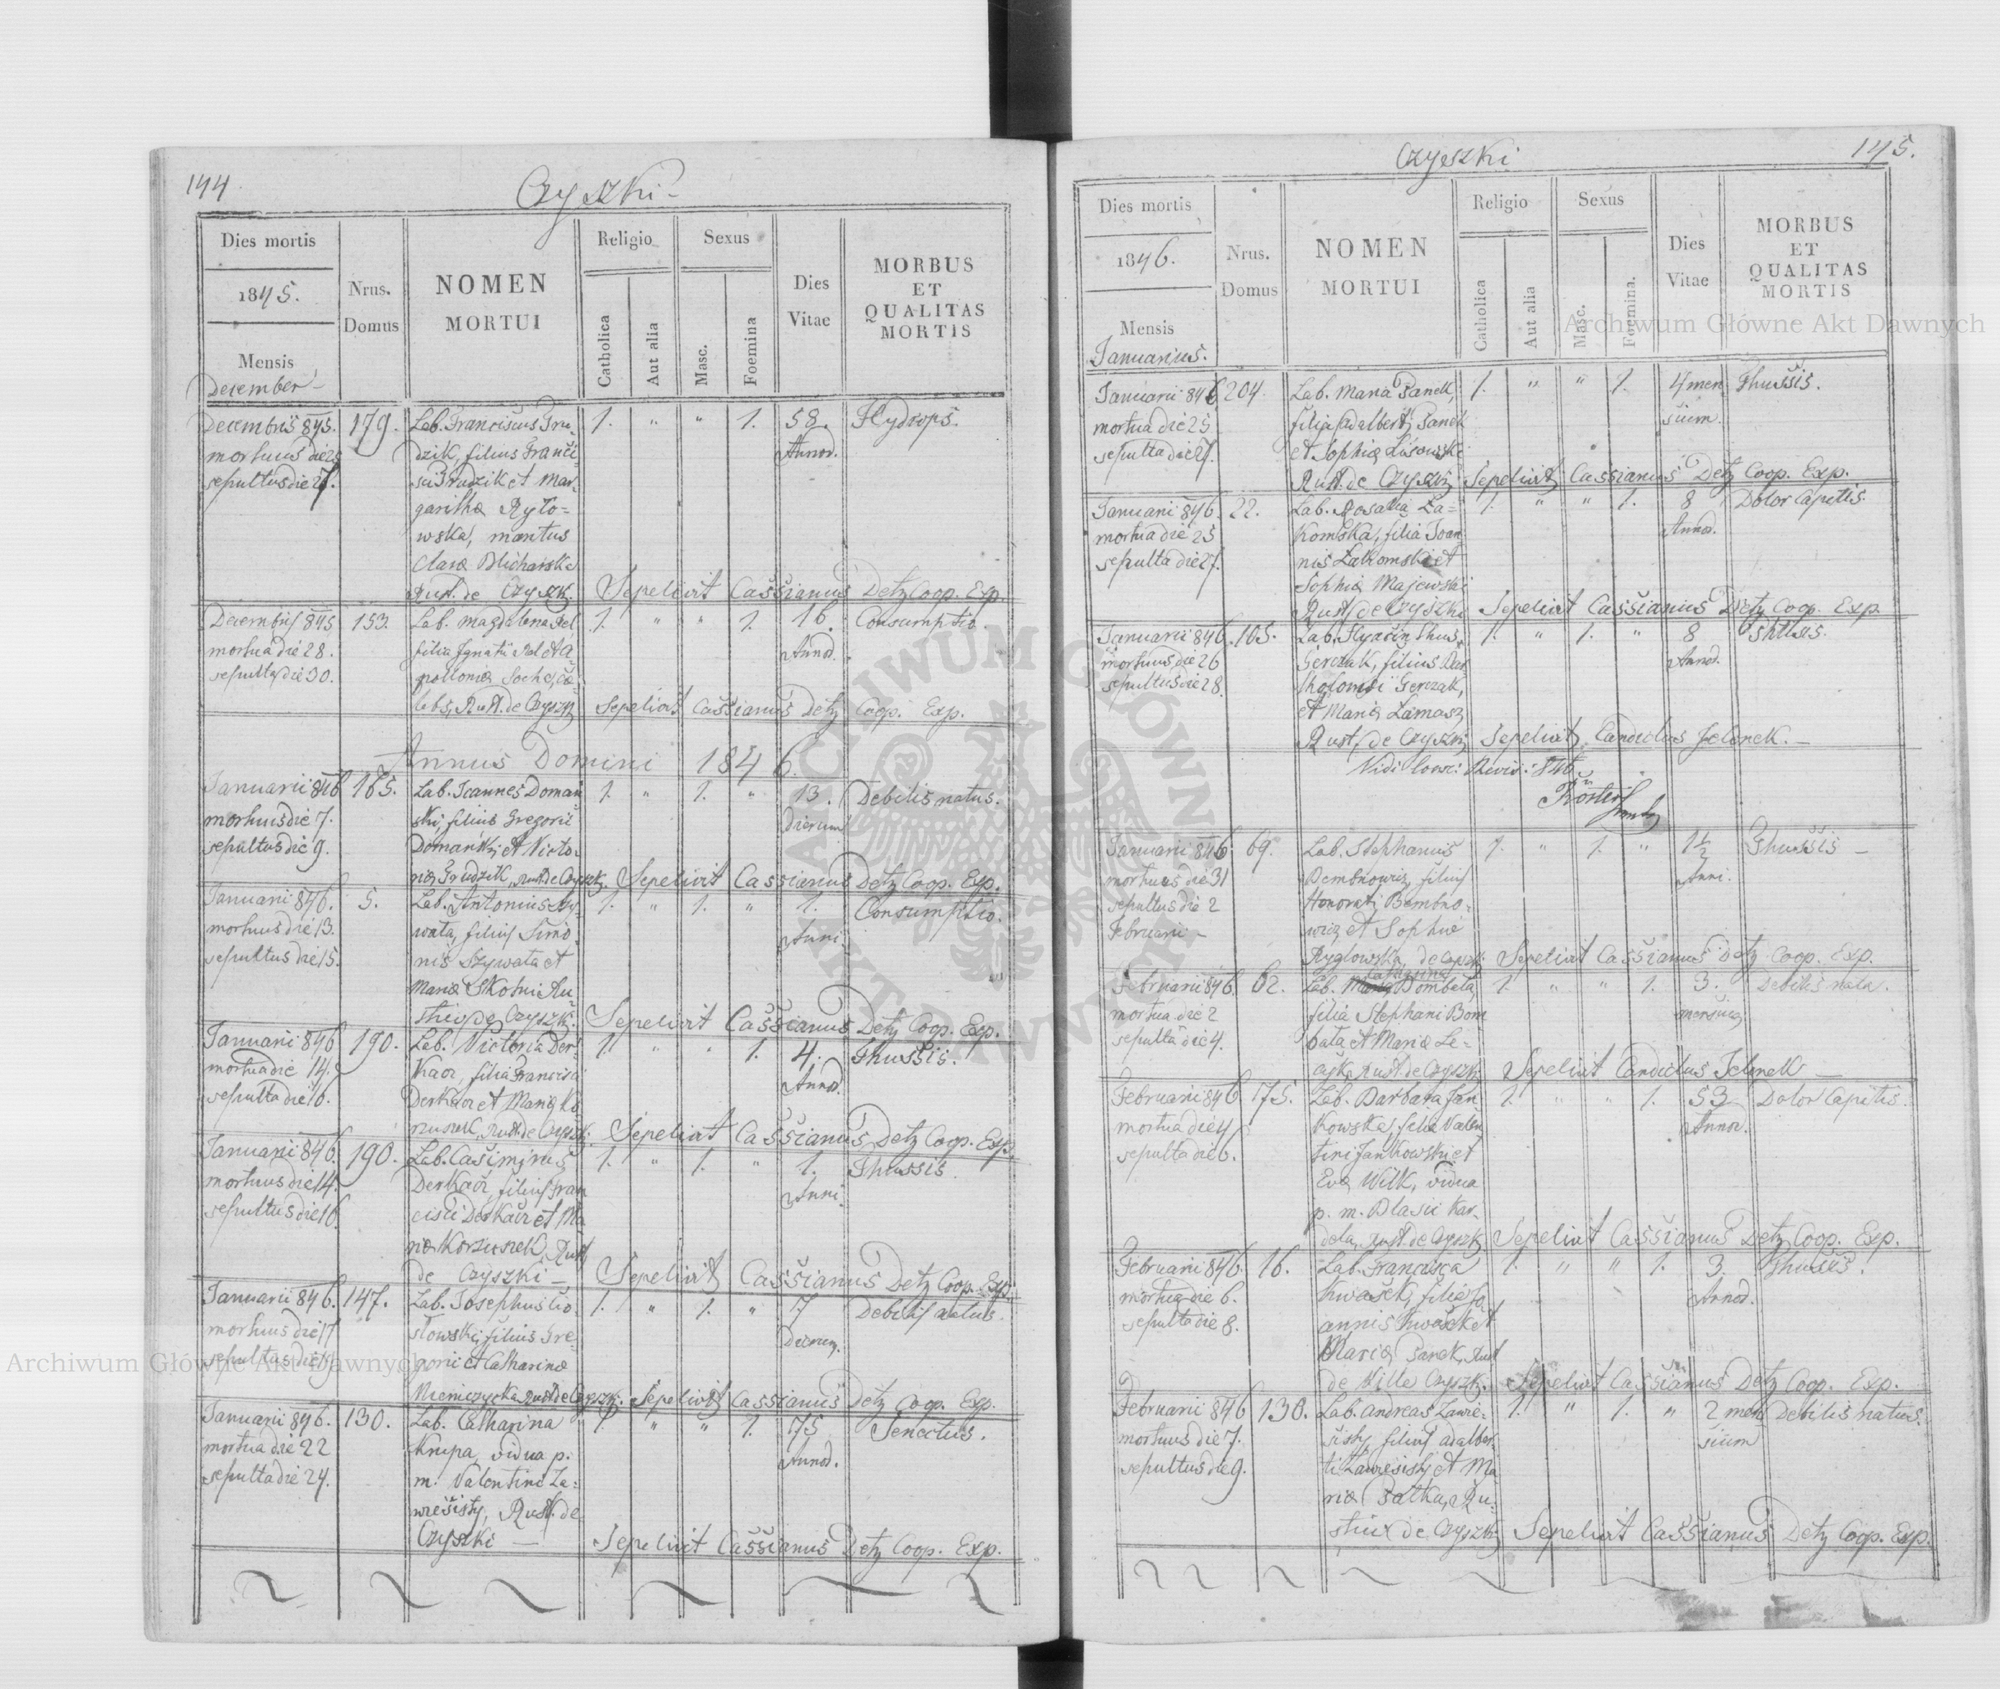 144.
Czyszki
Dies mortis
1845.
Mensis
December
Nrus.
Domus
NOMEN
MORTUI
Religio
Catholica
Aut alia
Sexus
Masc.
Foemina
Dies
Vitae
MORBUS
ET
QUALITAS
MORTIS
Decembris 845. 179. Lab. Franciscus Gru- 1. " " 1. 58. Hydrops.
mortuus die 25 dzik, filius Franci- Annor.
sepultus die 27. sci Grudzik et Mar-
garitha Ryto-
wska, maritus
Clara Blicharska
Rust. de Czyszk. Sepelivit Cassianus Detz Coop. Exp.
Decembris 845 153. Lab. Magdalena Pel 1. " " 1. 16. Consumptio.
mortua die 28. filia Ignatii Pel et A- Annor.
sepulta die 30. pollonia Socha, cœ-
lebs, Rust. de Czyszk Sepelivit Cassianus Detz Coop. Exp.
Annus Domini 1846.
Januarii 846 165. Lab. Joannes Doman 1. " 1. " 13. Debilis natus.
mortuus die 7. ski, filius Gregorii Dierum
sepultus die 9. Domański et Victo-
ria Grudzik, Rust. de Czyszk. Sepelivit Cassianus Detz Coop. Exp.
Januarii 846. 5. Lab. Antonius Szy- 1. " 1. " 1. Consumptio.
mortuus die 13. wata, filius Simo- Anni.
sepultus die 15. nis Szywata et
Maria Skotni Ru-
stic. de Czyszk. Sepelivit Cassianus Detz Coop. Exp.
Januarii 846 190. Lab. Victoria Der- 1. " " 1. 4. Thussis.
mortua die 14. Kacz, filia Francisci Annor.
sepulta die 16. Derkacz et Maria Ko
rzuszek, Rust. de Czyszk. Sepelivit Cassianus Detz Coop. Exp.
Januarii 846. 190. Lab. Casimirus 1. " 1. " 1. Thussis.
mortuus die 14. Derkacz, filius Fran Anni.
sepultus die 16. cisci Derkacz et Ma
ria Korzuszek, Rust
de Czyszki — Sepelivit Cassianus Detz Coop. Exp.
Januarii 846. 147. Lab. Josephus Cio- 1. " 1. " 17 Debilis natus.
mortuus die 17 słowski, filius Gre- Dierum.
sepultus die 19 gorii et Catharina
Niemczycka, Rust. de Czyszk. Sepelivit Cassianus Detz Coop. Exp.
Januarii 846. 130. Lab. Catharina 1. " " 1. 75 Senectus.
mortua die 22 Krupa, vidua p. Annor.
sepulta die 24. m. Valentini La-
wresisty, Rust. de
Czyszki — Sepelivit Cassianus Detz Coop. Exp.
145.
Czyszki
Dies mortis
1846.
Mensis
Januarius.
Nrus.
Domus
NOMEN
MORTUI
Religio
Catholica
Aut alia
Sexus
Masc.
Foemina.
Dies
Vitae
MORBUS
ET
QUALITAS
MORTIS
Januarii 846 204. Lab. Maria Panek, 1. " " 1. 4 men Thussis.
mortua die 25 filia Adalberti Panek sium.
sepulta die 27. et Sophia Lisowski
Rust. de Czyszki Sepelivit Cassianus Detz Coop. Exp.
Januarii 846. 22. Lab. Rosalia Ła- 1. " " 1. 8 Dolor Capitis.
mortua die 25 komska, filia Joan Annor.
sepulta die 27. nis Łakomski et
Sophia Majewski
Rust. de Czyszki Sepelivit Cassianus Detz Coop. Exp.
Januarii 846. 105. 1. " 1. " 8
mortuus die 26 Gerczak, filius Bar Annor.
sepultus die 28. tholomei Gerczak,
et Maria Łamasz,
Rust. de Czyszki Sepelivit Candidus Jelonek. —
Januarii 846 69. Lab. Stephanus 1. " 1. " 1½ Thussis —
mortuus die 31 Bembnowicz, filius Anni.
sepultus die 2 Honorati Bembno-
Februarii — wicz et Sophia
Ryglowska, de Czyszk Sepelivit Cassianus Detz Coop. Exp.
Februarii 846. 62. Lab. Bombała, 1. " " 1. 3. Debilis nata.
mortua die 2 filia Stephani Bom
sepulta die 4. bała et Maria Le-
Rust. de Czyszki Sepelivit Candidus Jelonek —
Februarii 846 175. Lab. Barbara Jan 1. " " 1. 53 Dolor Capitis.
mortua die 4 kowska, filia Valen Annor.
sepulta die 6. tini Jankowski et
Eva Wilk, vidua
p. m. Blasii Kar-
dela, Rust. de Czyszk. Sepelivit Cassianus Detz Coop. Exp.
Februarii 846. 16. Lab. Francisca 1. " " 1. 3. Thussis.
mortua die 6. Kwasek, filia Jo Annor.
sepulta die 8. annis Kwasek et
Maria Panek, Rust
de Ville Czyszki. Sepelivit Cassianus Detz Coop. Exp.
Februarii 846 130. Lab. Andreas Lawre- 1. " 1. " 2 men Debilis natus.
mortuus die 7. sisty, filius Adalber sium
sepultus die 9. ti Lawresisty et Ma
ria Pałka, Ru-
sticor de Czyszki Sepelivit Cassianus Detz Coop. Exp.
Archiwum Główne Akt Dawnych
Archiwum Główne Akt Dawnych
ARCHIWUM GŁÓWNE AKT DAWNYCH